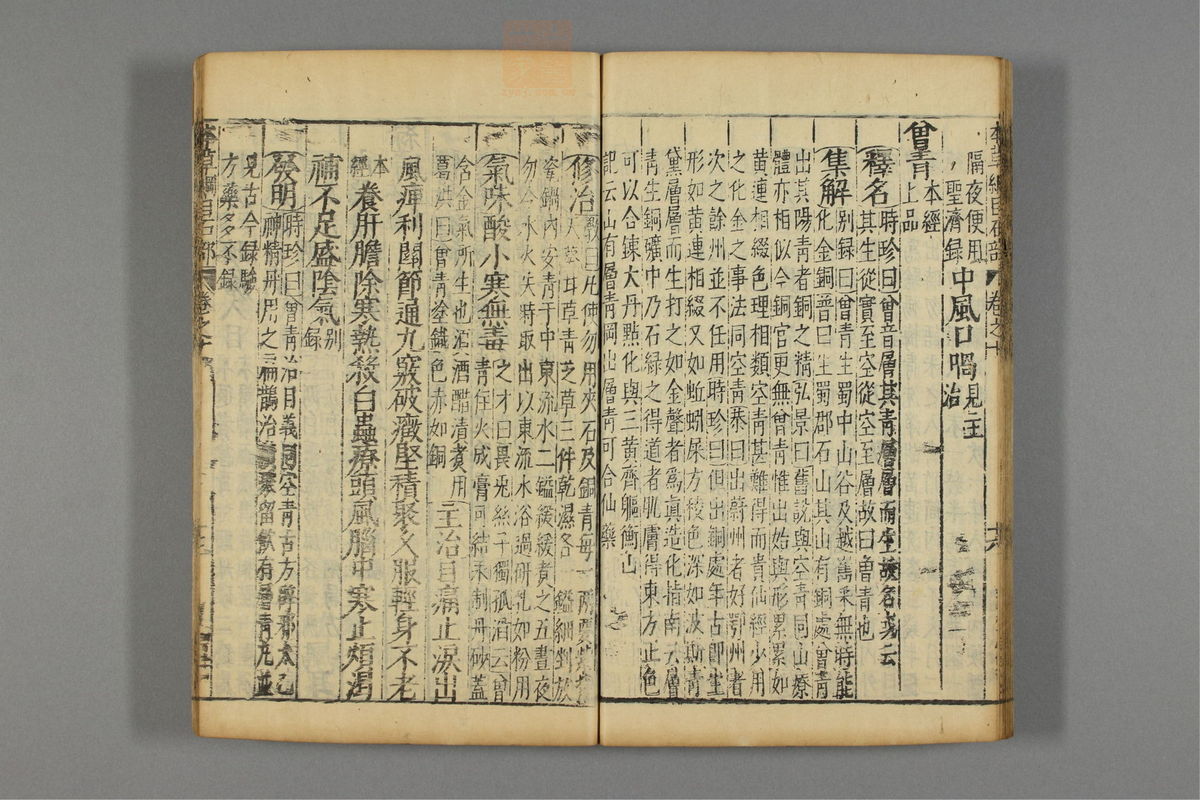 隔夜便用
聖濟錄
中風口喎見主
治
曾青本經
上品
釋名時珍曰曾音層其青層層而生故名或云
其生從實至空從空至層故曰曾青也
集解別錄曰曾青生蜀中山谷及越嶲采無時能
化金銅普曰生蜀郡石山其山有銅處曾青
出其陽青者銅之精弘景曰舊說與空青同山療
體亦相似今銅官更無曾青惟出始興形累累如
黃連相綴色理相類空青甚難得而貴仙經少用
之化金之事法同空青恭曰出蔚州者好鄂州者
次之餘州並不任用時珍曰但出銅處年古即生
形如黃連相綴又如蚯蚓屎方稜色深如波斯青
黛層層而生打之如金聲者為真造化指南云層
青生銅礦中乃石綠之得道者肌膚得東方正色
可以合鍊大丹點化與三黃齊驅衡山
記云山有層青岡出層青可合仙藥
修治斅曰凡使勿用夾石及銅青每一兩要紫背
天葵甘草青芝草三件乾濕各一鎰細剉放
瓷鍋內安青于中東流水二鎰緩緩煑之五晝夜
勿令水火失時取出以東流水浴過研乳如粉用
氣味酸小寒無毒之才曰畏兔絲子獨孤滔云曾
青住火成膏可結汞制丹砂蓋
含金氣所生也須酒醋漬煑用
葛洪曰曾青塗鐵色赤如銅
主治目痛止淚出
風痺利關節通九竅破癥堅積聚久服輕身不老
本經
養肝膽除寒熱殺白蟲療頭風腦中寒止煩渴
補不足盛陰氣別
錄
發明時珍曰曾青治目義同空青古方辟邪太乙
神精丹用之扁鵲治積聚留飲有層青丸並
見古今錄驗
方藥多不錄
本草綱目石部 卷之十